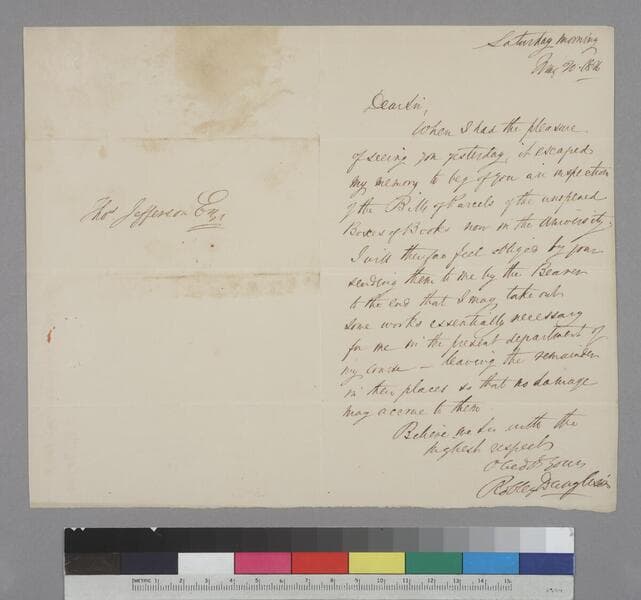 Thos. Jefferson Esqr
Saturday morning
May 20. 1826
Dear Sir,
When I had the pleasure
of seeing you yesterday, it escaped
my memory to beg of you an inspection
of the Bills of Parcels of the unopened
Boxes of Books now in the University
I will therefore feel obliged by your
sending them to me by the Bearer
to the end that I may take out
some works essentially necessary
for me in the present department of
my course — leaving the remainder
in their places so that no damage
may accrue to them.
Believe me Sir with the
highest respect
Obedt yours
Robley Dunglison
METRIC 1 2 3 4 5 6 7 8 9 10 11 12 13 14 15